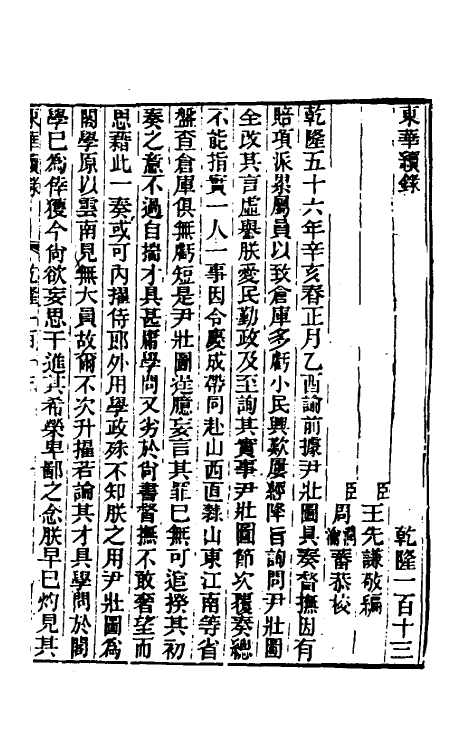 東華續錄　乾隆一百十三
臣王先謙敬編
臣周潤蕃恭校
乾隆五十六年辛亥春正月乙酉諭前據尹壯圖具奏督撫因有
賠項派累屬員以致倉庫多虧小民興歎屢經降旨詢問尹壯圖
全改其言虛譽朕愛民勤政及至詢其實事尹壯圖節次覆奏總
不能指實一人一事因令慶成帶同赴山西直隸山東江南等省
盤查倉庫俱無虧短是尹壯圖從臆妄言其罪已無可逭揆其初
奏之意不過自揣才具甚庸學問又劣於尚書督撫不敢奢望而
思藉此一奏或可內擢侍郎外用學政殊不知朕之用尹壯圖為
閣學原以雲南見無大員故爾不次升擢若論其才具學問於閣
學已為倖獲今尚欲妄思干進其希榮卑鄙之念朕早已灼見其